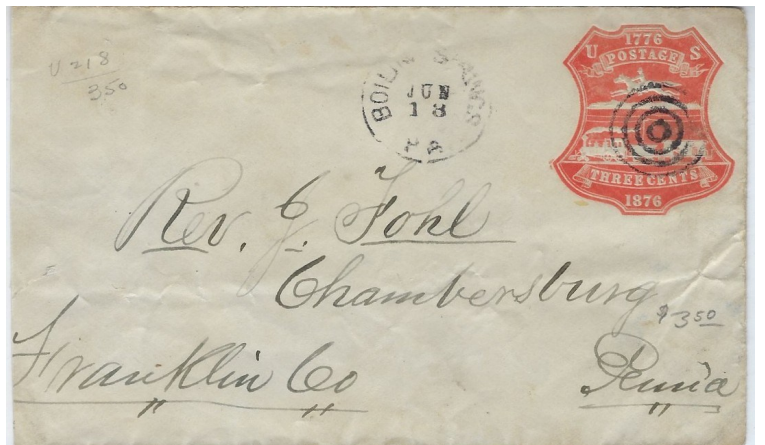 U 218
350
BOILING SPRINGS
JUN
18
PA
1776
U S
POSTAGE
THREE CENTS
1876
Rev. J. Fohl
Chambersburg
$350
Franklin Co
Penn'a